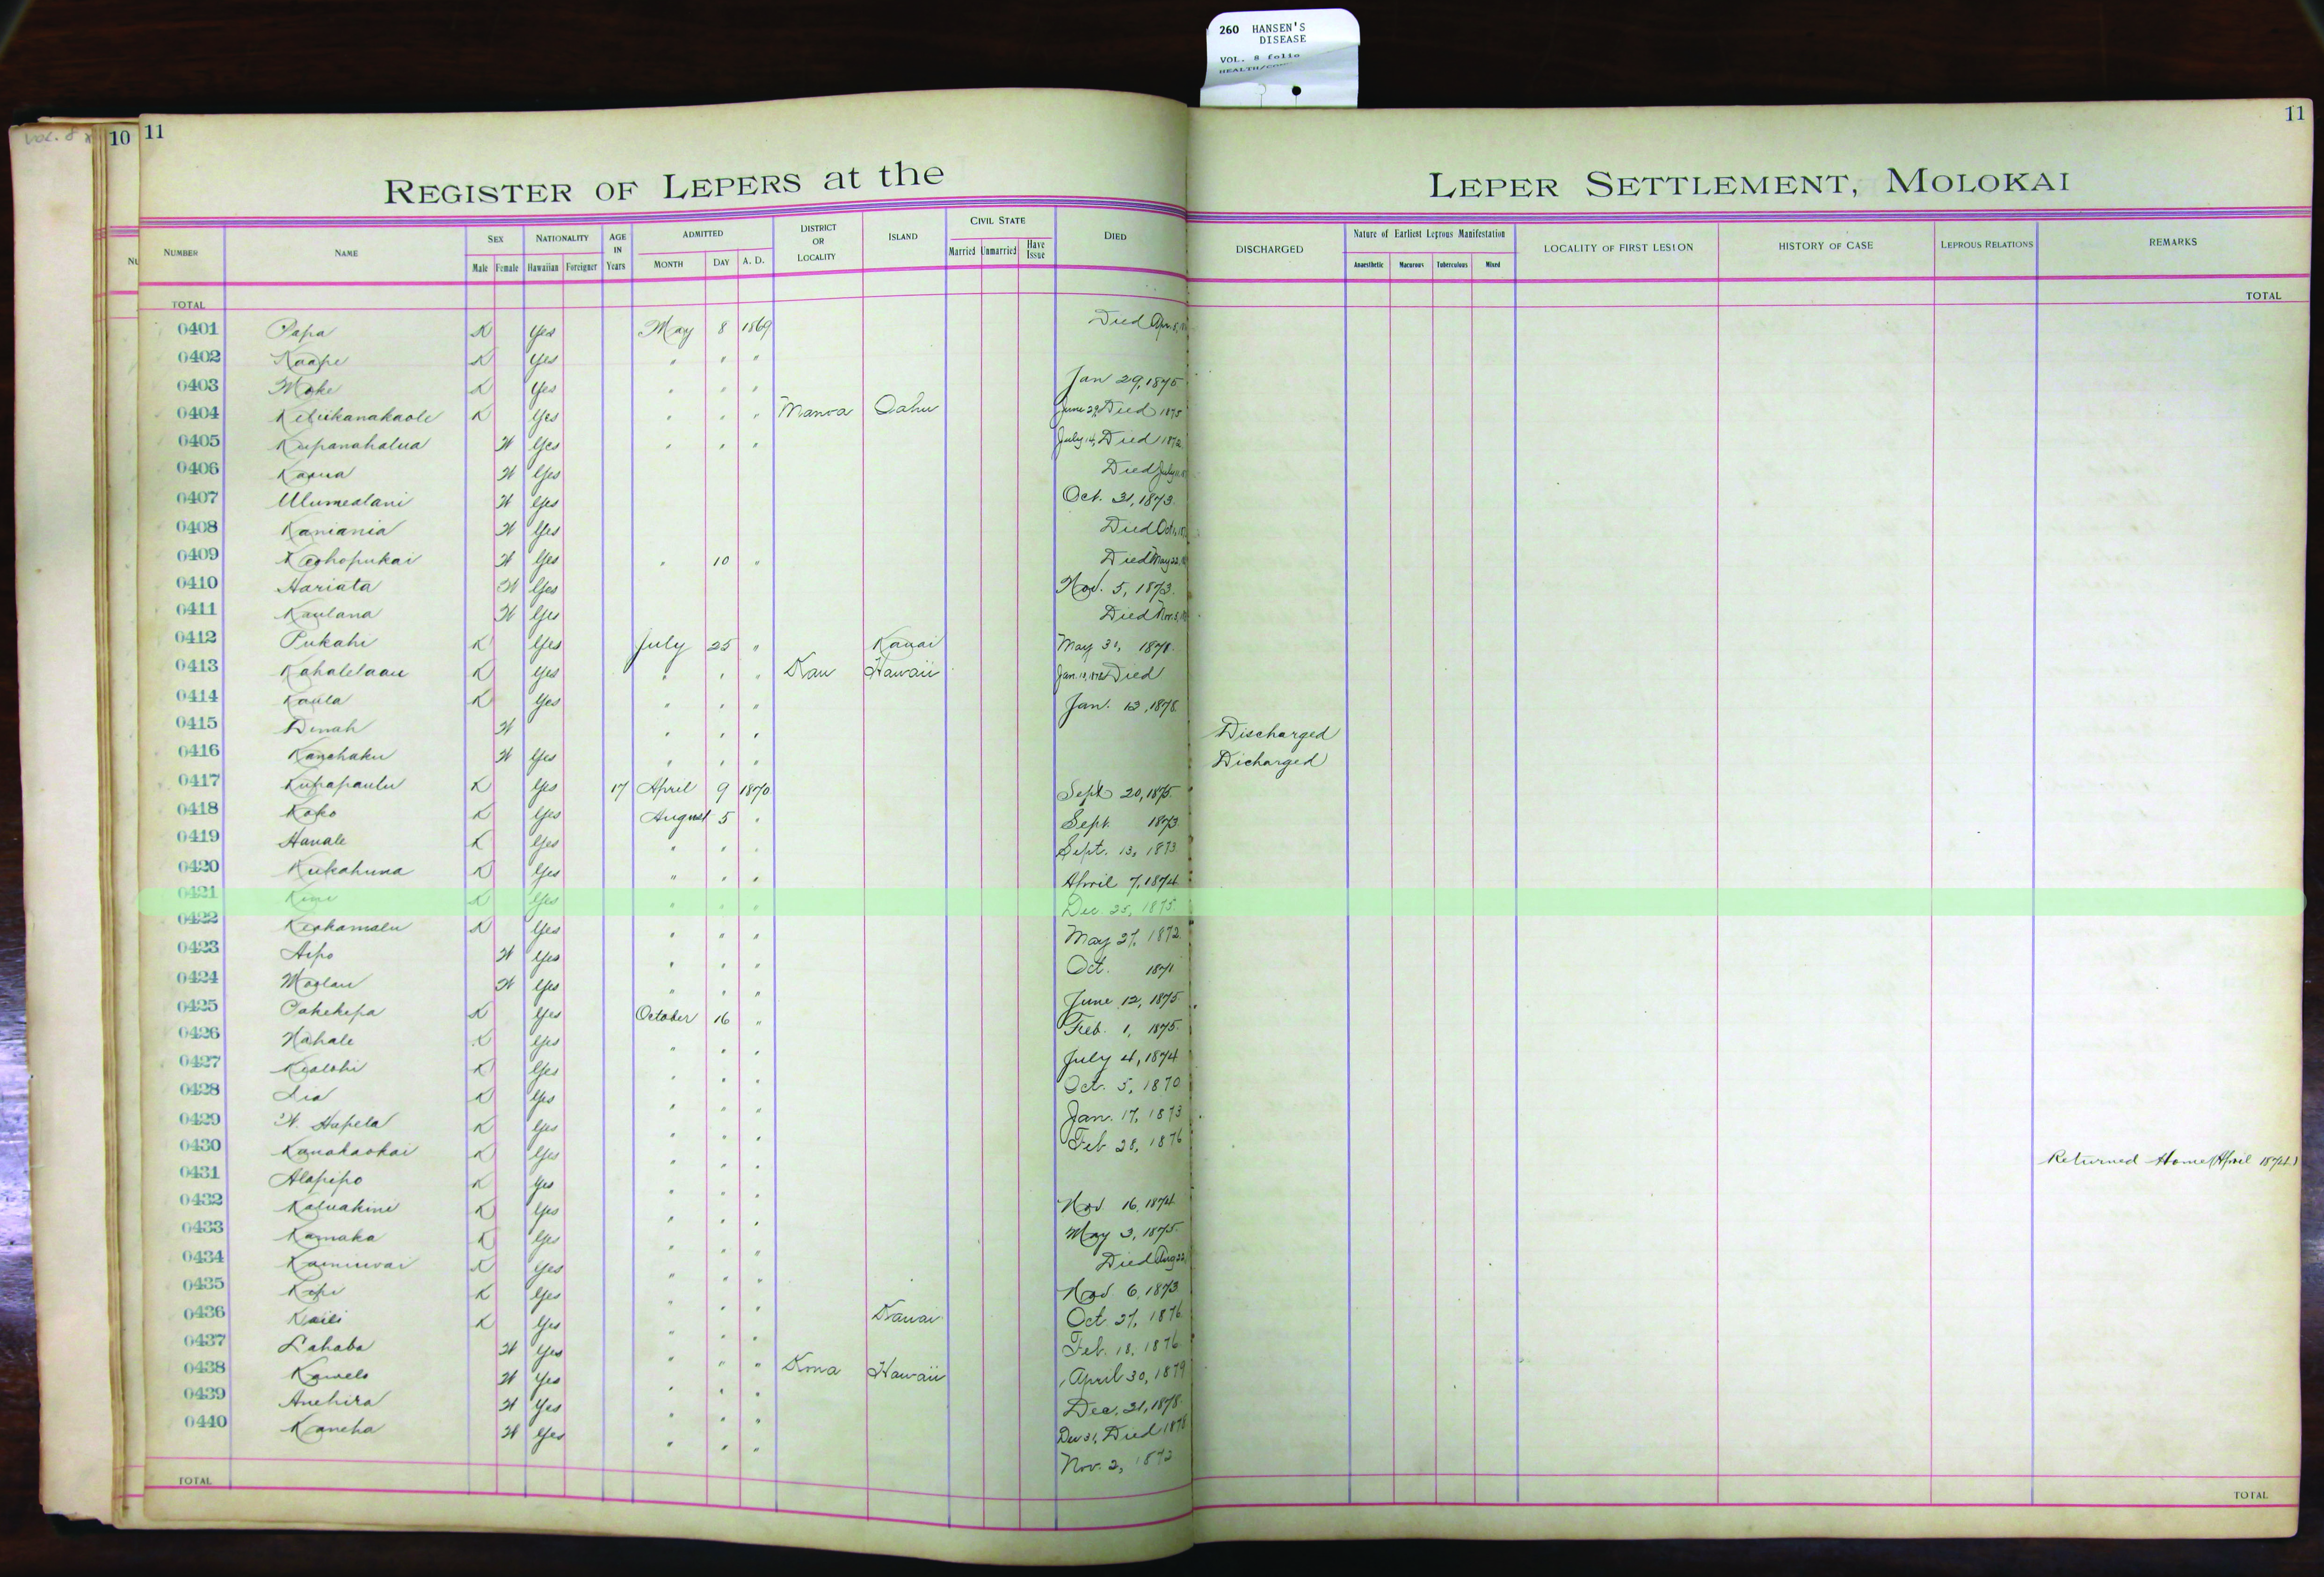 260 HANSEN'S
DISEASE
VOL. 8 folio
vol. 8
10 11
11
REGISTER OF LEPERS at the LEPER SETTLEMENT, MOLOKAI
NUMBER NAME SEX Male Female NATIONALITY Hawaiian Foreigner AGE IN Years ADMITTED MONTH DAY A. D. DISTRICT OR LOCALITY ISLAND CIVIL STATE Married Unmarried Have Issue DIED DISCHARGED Nature of Earliest Leprous Manifestation Anaesthetic Macurous Tuberculous Mixed LOCALITY OF FIRST LESION HISTORY OF CASE LEPROUS RELATIONS REMARKS
TOTAL TOTAL
0401 Papa K Yes May 8 1869 Died Apr. 8,
0402 Kaape K Yes " " "
0403 Moke K Yes " " " Jan 29, 1875
0404 Keliikanakaole K Yes " " " Manoa Oahu June 29, Died 1875
0405 Kupanahalua W Yes " " " July 14, Died 1872
0406 W Yes Died July
0407 Ulumealani W Yes Oct. 31, 1873.
0408 Kaniania W Yes Died Oct.
0409 Keohopukai W Yes " 10 " Died May 22,
0410 Hariata W Yes Nov. 5, 1873.
0411 Kaulana W Yes Died Nov. 3,
0412 Pukahi K Yes July 25 " Kauai May 31, 1878.
0413 Kahalelaau K Yes " " " Kau Hawaii Jan. Died
0414 Kaula K Yes " " " Jan. 12, 1878.
0415 Dinah W " " " Discharged
0416 Kanehaku W Yes " " " Dicharged
0417 Kupapaulu K Yes 17 April 9 1870 Sept 20, 1875.
0418 Koko K Yes August 5 " Sept. 1873
0419 Hanale K Yes " " " Sept. 13, 1873
0420 Kukahuna K Yes " " " April 7, 1874
0421 K Yes " " " Dec. 25, 1875.
0422 Keohamalu K Yes " " " May 27, 1872
0423 Aipo W Yes " " " Oct. 1871
0424 Moolau W Yes " " " June 12, 1875
0425 Pakekepa K Yes October 16 " Feb. 1, 1875.
0426 Nahale K Yes " " " July 4, 1874
0427 Kealohi K Yes " " " Oct. 5, 1870
0428 Lia K Yes " " " Jan. 17, 1873
0429 W. Hapela K Yes " " " Feb 28, 1876
0430 Kanakaokai K Yes " " " Returned Home (April 1874.)
0431 Alapipo K Yes " " " Nov. 16, 1874
0432 Kaluakini K Yes " " " May 3, 1875.
0433 Kamaka K Yes " " " Died Aug 22,
0434 Kainiwai K Yes " " " Nov. 6, 1873
0435 Kepi K Yes " " " Oct. 27, 1876
0436 Kaili K Yes " " " Kauai Feb. 18, 1876
0437 Lahaba W Yes " " " April 30, 1879
0438 Kawelo W Yes " " " Kona Hawaii Dec. 31, 1878.
0439 Anehira W Yes " " " Dec 31, Died 1878
0440 Kaneha W Yes " " " Nov. 2, 1872
TOTAL TOTAL